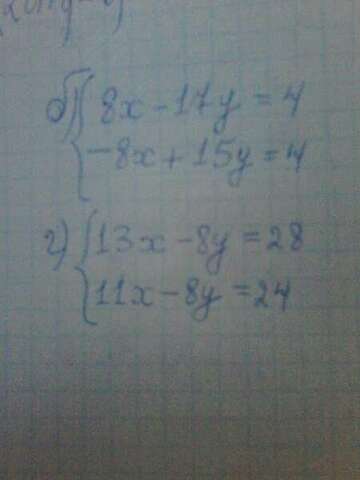 б) { 8x - 17y = 4
-8x + 15y = 4
г) { 13x - 8y = 28
11x - 8y = 24